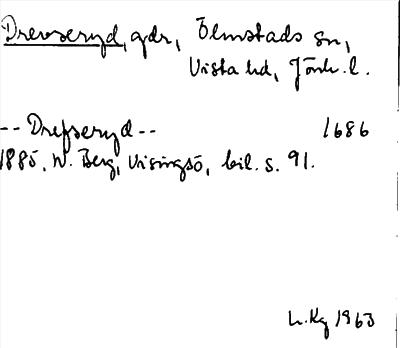 Drevseryd, gdr, Ölmstads sn,
Vista hd, Jönk. l.
-- Drefseryd -- 1686
1885. W. Berg, Visingsö, bil. s. 91.
L. Kg 1963